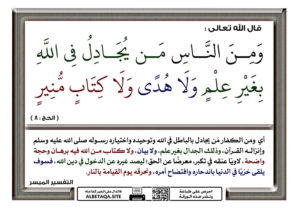 قال الله تعالى :
وَمِنَ النَّاسِ مَن يُجَادِلُ فِي اللَّهِ
بِغَيْرِ عِلْمٍ وَلَا هُدًى وَلَا كِتَابٍ مُّنِيرٍ
( الحج : ٨ )
أي ومن الكفار مَن يجادل بالباطل في الله وتوحيده واختياره رسوله صلى الله عليه وسلم
وإنزاله القرآن، وذلك الجدال بغير علم، ولا بيان، ولا كتاب من الله فيه برهان وحجة
واضحة ، لاويًا عنقه في تكبر، معرضًا عن الحق؛ ليصد غيره عن الدخول في دين الله ، فسوف
يلقى خزيًا في الدنيا باندحاره وافتضاح أمره، ونحرقه يوم القيامة بالنار.
التفسير الميسر
احرص على طباعة
ونشر هذه البطاقة
ALBETAQA.SITE